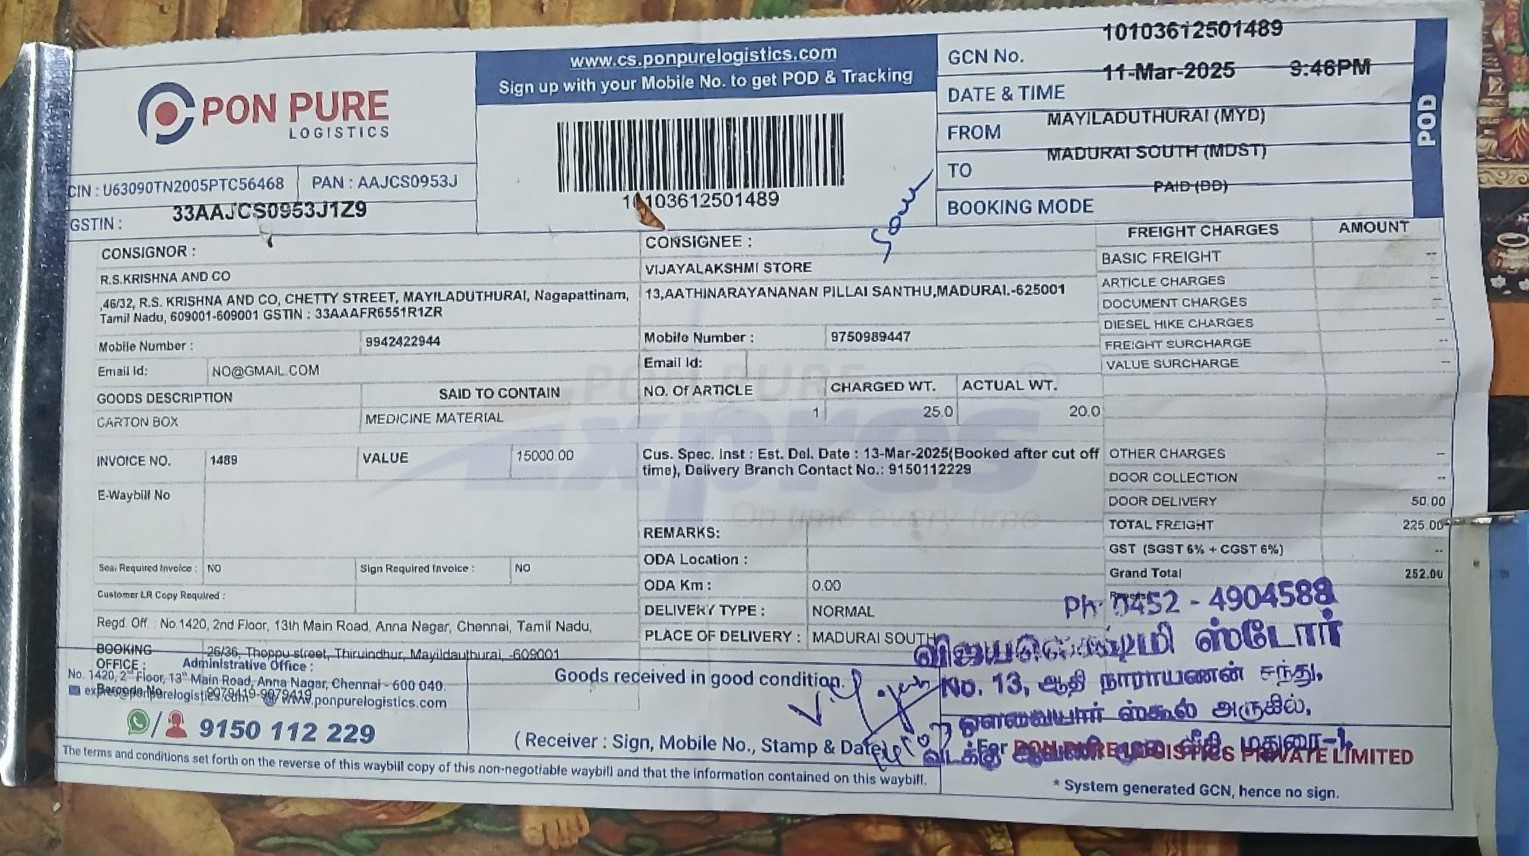 PON PURE
LOGISTICS
CIN : U63090TN2005PTC56468 PAN : AAJCS0953J
GSTIN : 33AAJCS0953J1Z9
www.cs.ponpurelogistics.com
Sign up with your Mobile No. to get POD & Tracking
10103612501489
GCN No. 10103612501489
DATE & TIME 11-Mar-2025 9:46PM
FROM MAYILADUTHURAI (MYD)
TO MADURAI SOUTH (MDST)
BOOKING MODE PAID (DD)
POD
CONSIGNOR :
R.S.KRISHNA AND CO
,46/32, R.S. KRISHNA AND CO, CHETTY STREET, MAYILADUTHURAI, Nagapattinam,
Tamil Nadu, 609001-609001 GSTIN : 33AAAFR6551R1ZR
Mobile Number : 9942422944
Email Id: NO@GMAIL.COM
GOODS DESCRIPTION SAID TO CONTAIN
CARTON BOX MEDICINE MATERIAL
INVOICE NO. 1489 VALUE 15000.00
E-Waybill No
Seal Required Invoice : NO Sign Required Invoice : NO
Customer LR Copy Required :
Regd. Off : No.1420, 2nd Floor, 13th Main Road, Anna Nagar, Chennai, Tamil Nadu,
BOOKING OFFICE : 26/36, Thoppu street, Thiruindhur, Mayildauthurai, -609001
Administrative Office :
No. 1420, 2nd Floor, 13th Main Road, Anna Nagar, Chennai - 600 040.
www.ponpurelogistics.com
9150 112 229
The terms and conditions set forth on the reverse of this waybill copy of this non-negotiable waybill and that the information contained on this waybill.
CONSIGNEE :
VIJAYALAKSHMI STORE
13,AATHINARAYANANAN PILLAI SANTHU,MADURAI.-625001
Mobile Number : 9750989447
Email Id:
NO. Of ARTICLE CHARGED WT. ACTUAL WT.
1 25.0 20.0
Cus. Spec. Inst : Est. Del. Date : 13-Mar-2025(Booked after cut off
time), Delivery Branch Contact No.: 9150112229
PON PURE
Expres
On time every time
REMARKS:
ODA Location :
ODA Km : 0.00
DELIVERY TYPE : NORMAL
PLACE OF DELIVERY : MADURAI SOUTH
Goods received in good condition.
( Receiver : Sign, Mobile No., Stamp & Date
FREIGHT CHARGES AMOUNT
BASIC FREIGHT --
ARTICLE CHARGES --
DOCUMENT CHARGES --
DIESEL HIKE CHARGES --
FREIGHT SURCHARGE --
VALUE SURCHARGE --
OTHER CHARGES --
DOOR COLLECTION --
DOOR DELIVERY 50.00
TOTAL FREIGHT 225.00
GST (SGST 6% + CGST 6%) --
Grand Total 252.00
Ph: 0452 - 4904588
விஜயலெட்சுமி ஸ்டோர்
No. 13, ஆதி நாராயணன் சந்து,
ஔவையார் ஸ்கூல் அருகில்,
வடக்கு ஆவணி மூல வீதி மதுரை-1
For PON PURE LOGISTICS PRIVATE LIMITED
* System generated GCN, hence no sign.